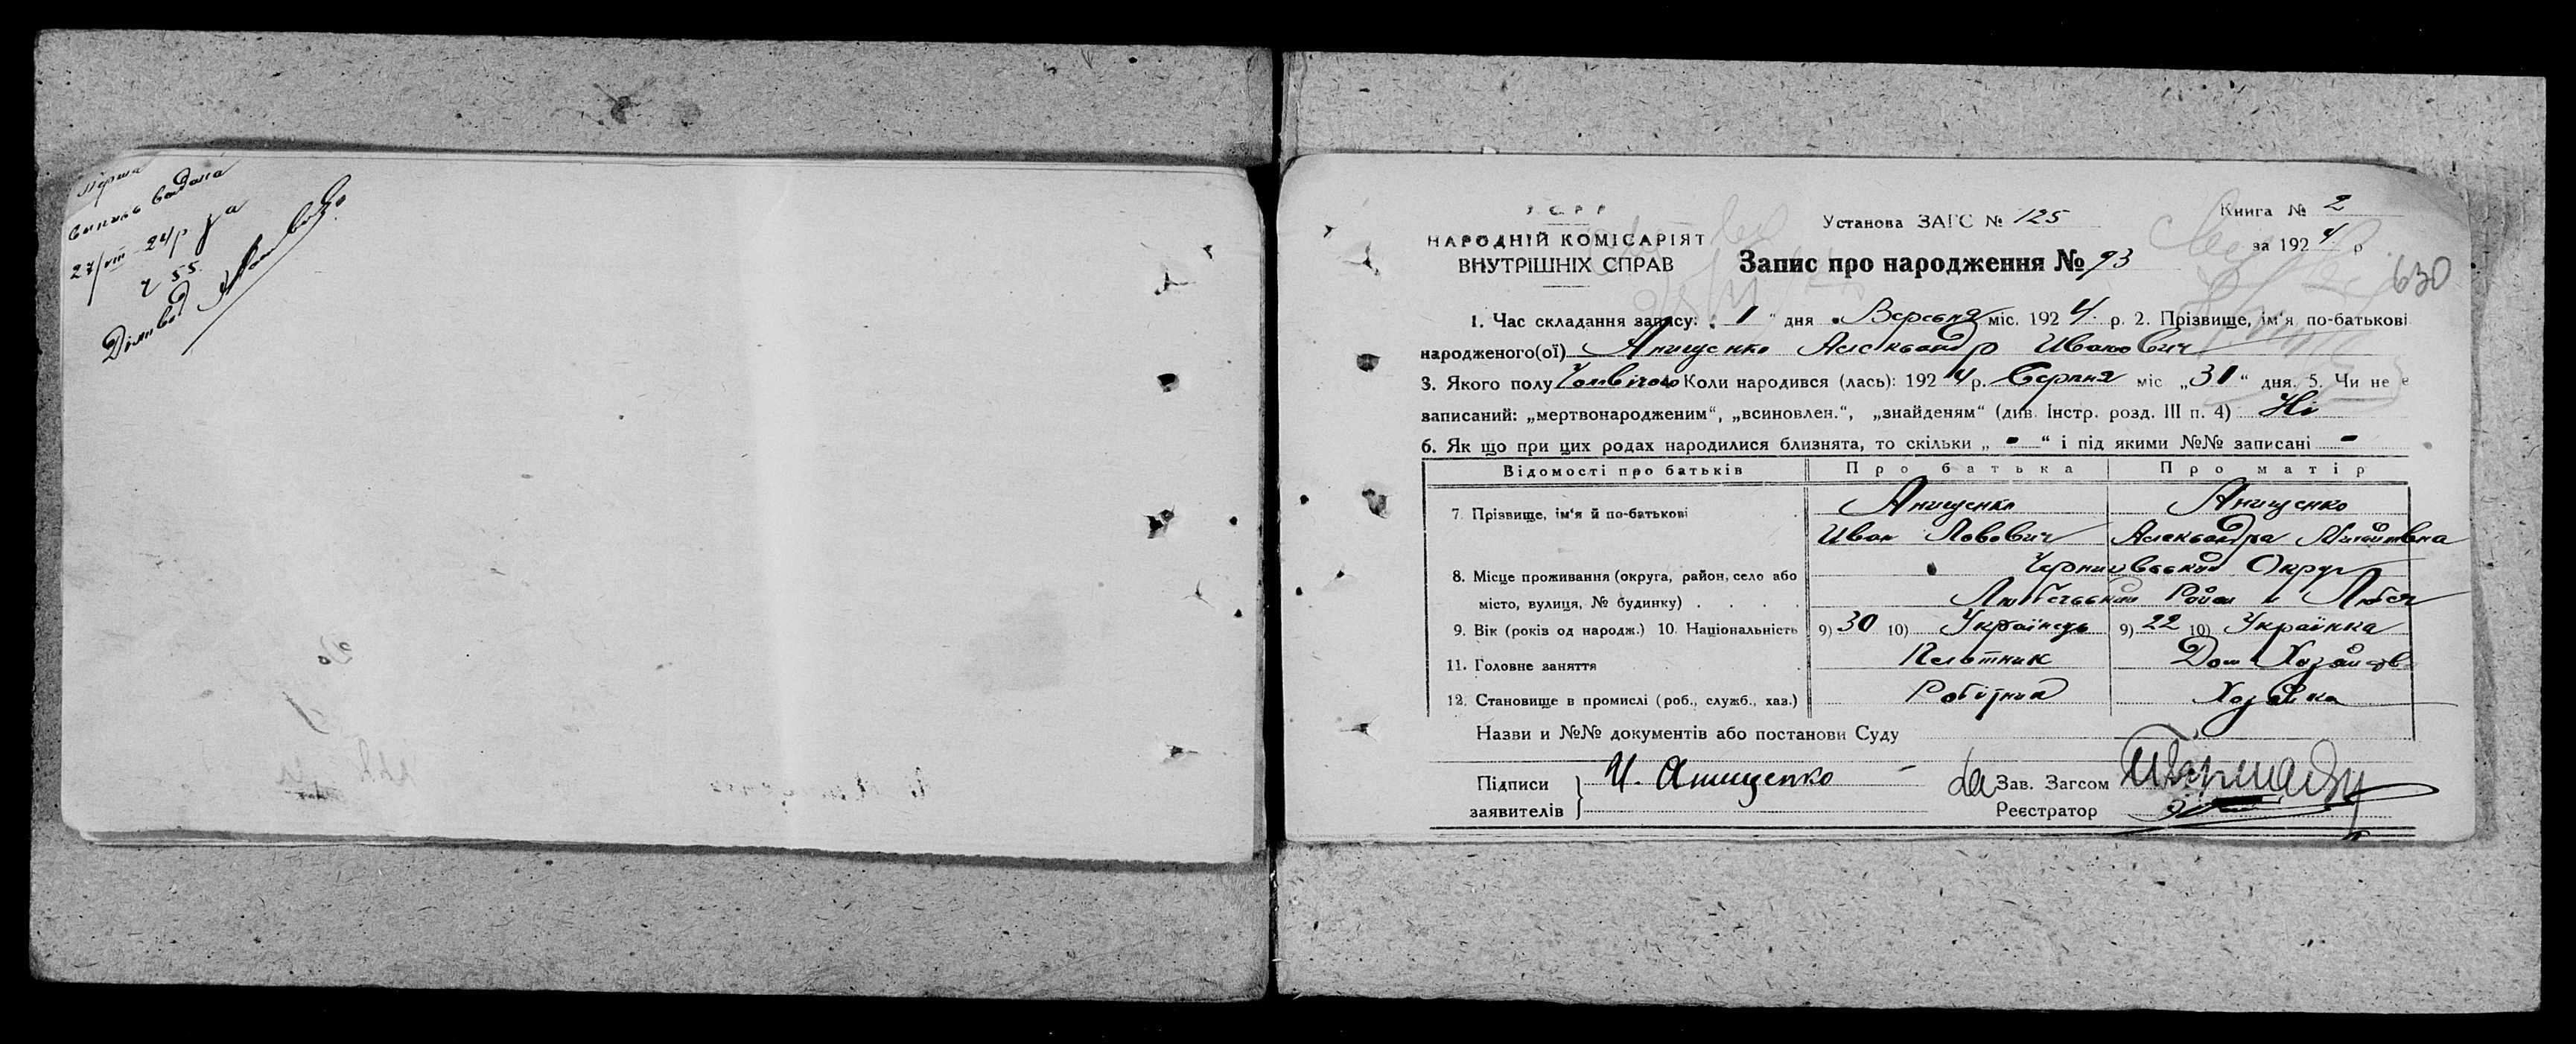 Перша
випись видана
27/VIII 24 р за
№ 55.
Діловод
У С Р Р
НАРОДНІЙ КОМІСАРІЯТ
ВНУТРІШНІХ СПРАВ
Установа ЗАГС № 125
Книга № 2
за 1924 р
Запис про народження № 93
630
1. Час складання запису: „ 1 " дня „ Вересня міс. 1924 р. 2. Прізвище, ім'я по-батькові
народженого(ої) Анищенко Александр Иванович
3. Якого полу Чоловічого 4. Коли народився (лась): 1924 р. Серпня міс „31" дня. 5. Чи не є
записаний: „мертвонародженим", „всиновлен.", „знайденям" (див. Інстр. розд. III п. 4) Ні
6. Як що при цих родах народилися близнята, то скільки „ - " і під якими №№ записані -
Відомості про батьків Про батька Про матір
7. Прізвище, ім'я й по-батькові Анищенко Анищенко
Иван Александра
8. Місце проживання (округа, район, село або Черниговский Округ
місто, вулиця, № будинку) . . . . Любечський Район м Любеч
9. Вік (років од народж.) 10. Національність 9) 30 10) Українець 9) 22 10) Українка
11. Головне заняття Плотник Дом Хозяйств
12. Становище в промислі (роб., служб., хаз.) Робітник Хозяйка
Назви и №№ документів або постанови Суду
Підписи И. Анищенко
заявителів
за Зав. Загсом
Реєстратор